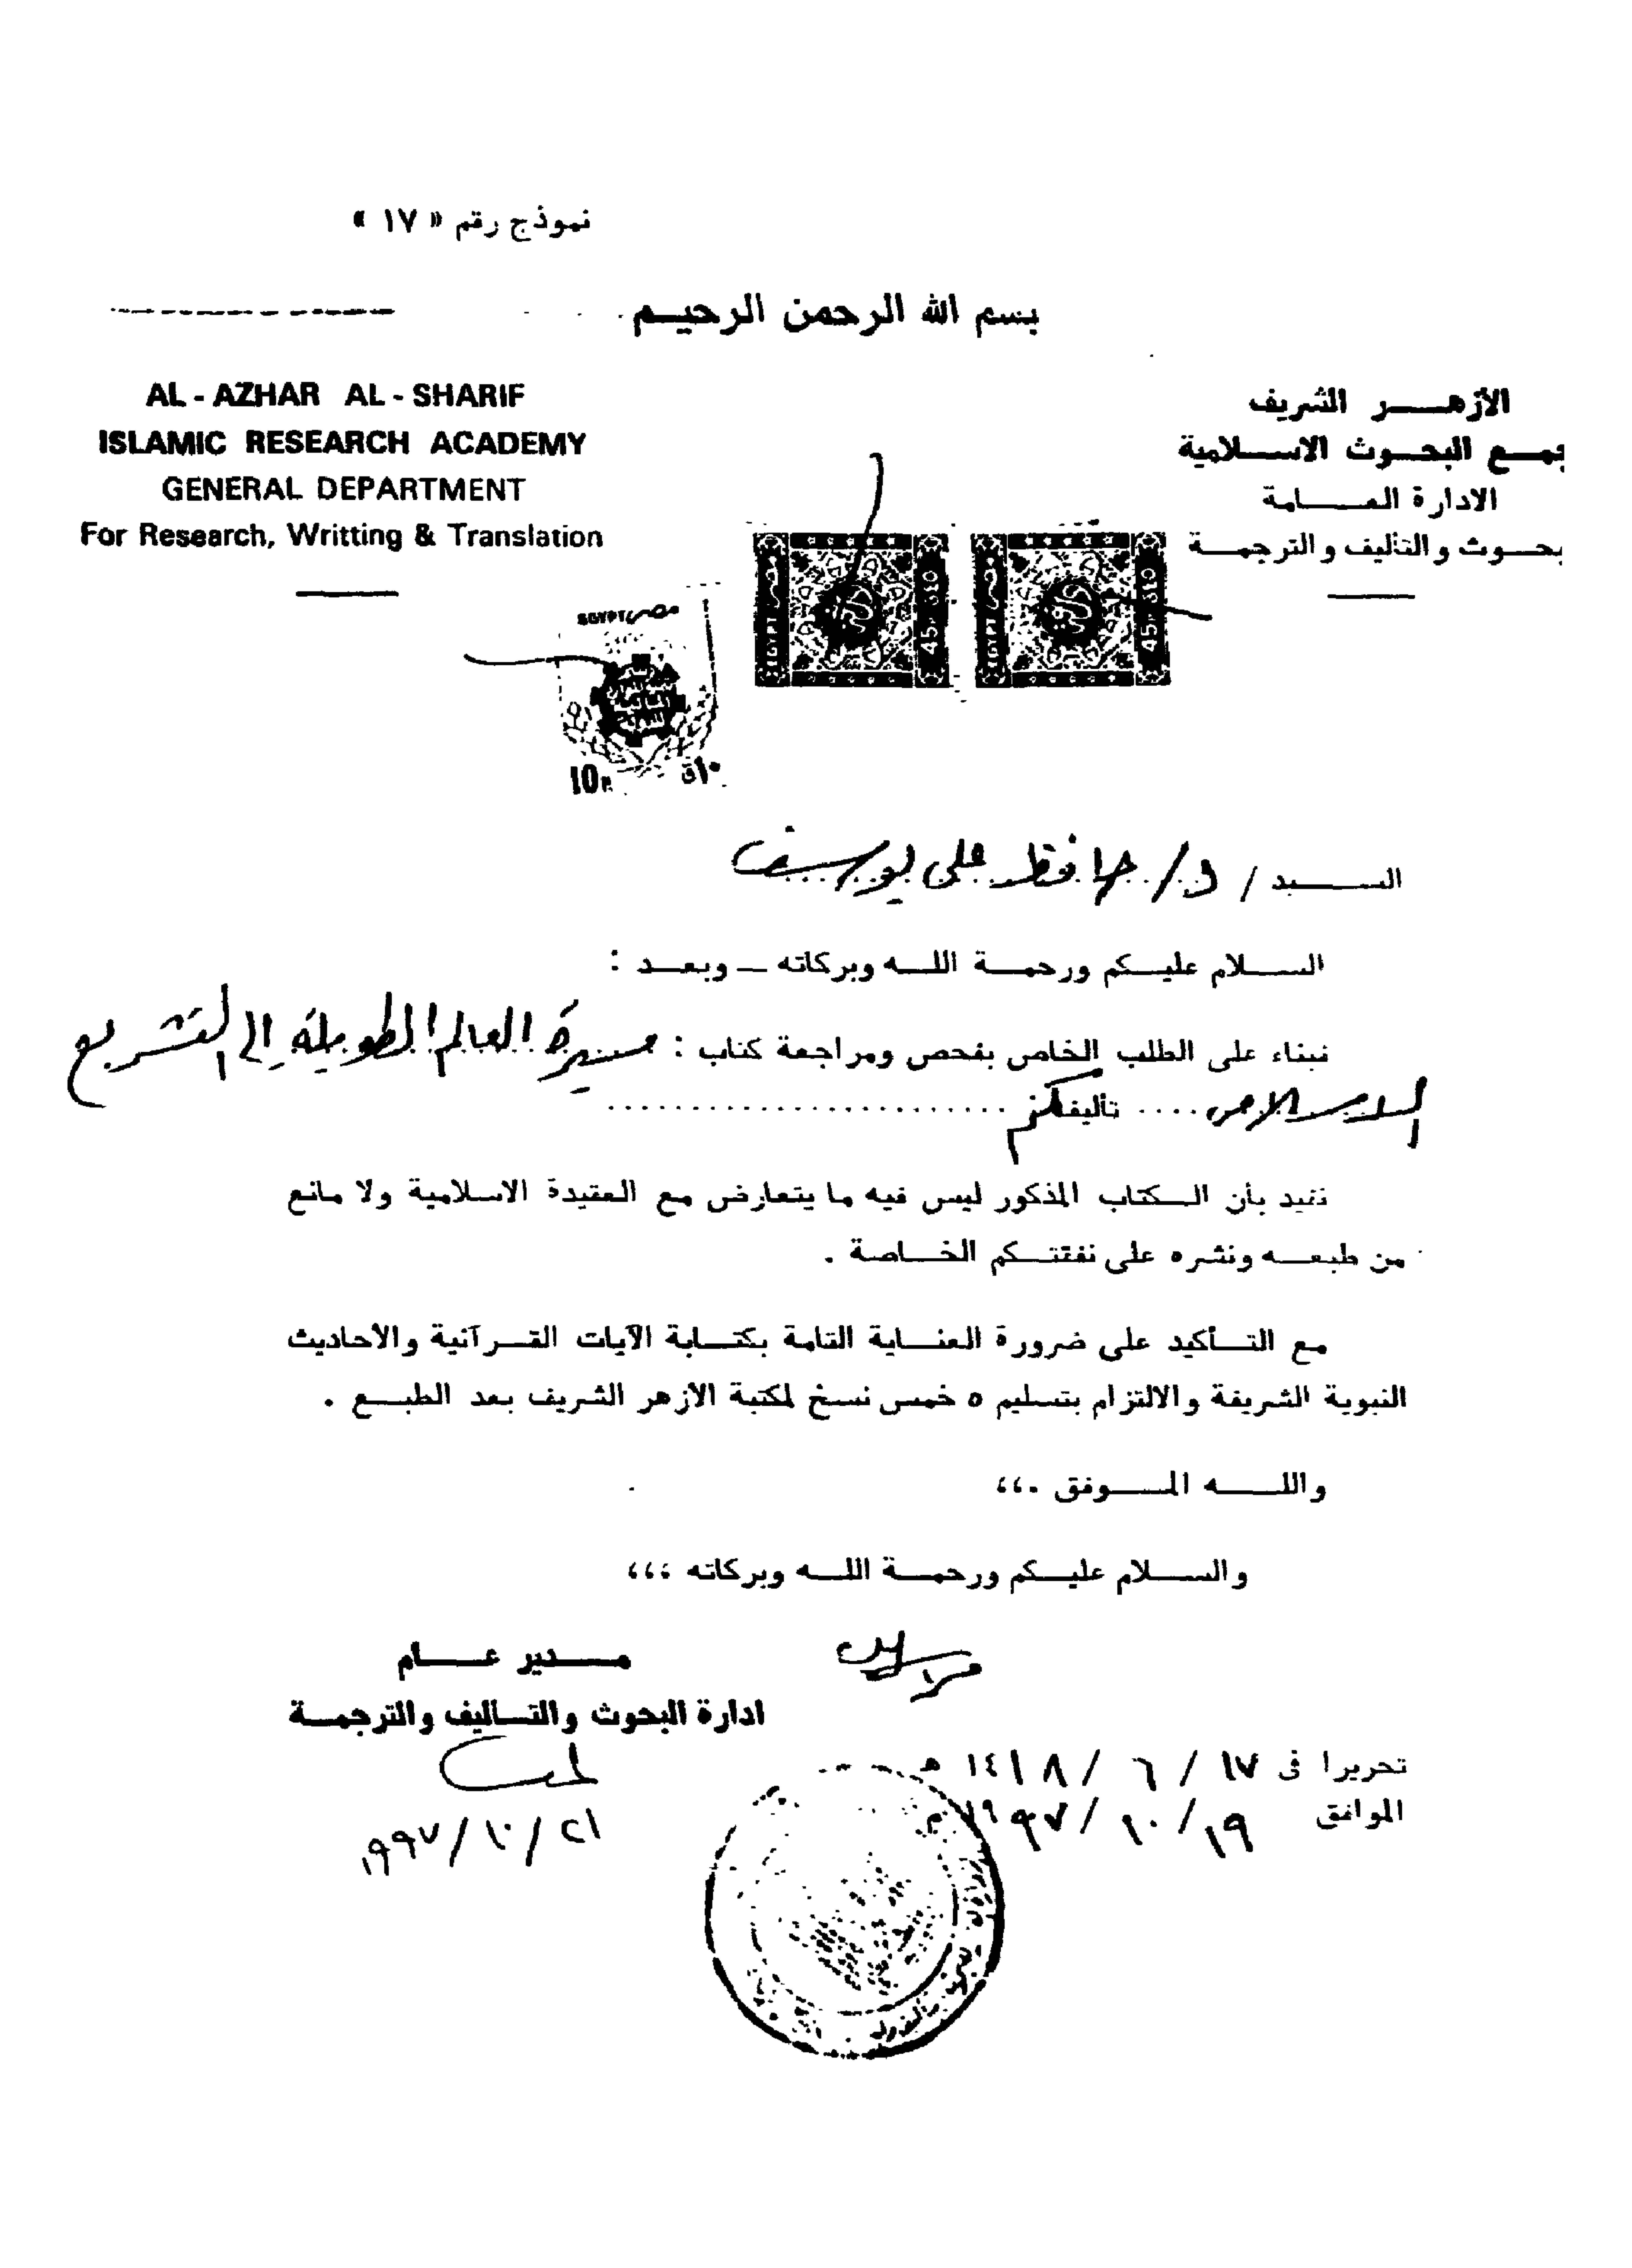 نموذج رقم « ١٧ »
بسم الله الرحمن الرحيم
AL - AZHAR AL - SHARIF
ISLAMIC RESEARCH ACADEMY
GENERAL DEPARTMENT
For Research, Writting & Translation
الأزهر الشريف
جمع البحوث الاسلامية
الادارة العامة
بحوث والتأليف والترجمة
مصر EGYPT
10
١٠ق
EGYPT مصر 45
EGYPT مصر 45
السيد / د/ حافظ على يوسف
السلام عليكم ورحمة الله وبركاته – وبعد :
فبناء على الطلب الخاص بفحص ومراجعة كتاب : مسيرة العالم الطويلة إلى التشريع
الاسلامى .... تأليفكم
نفيد بأن الكتاب المذكور ليس فيه ما يتعارض مع العقيدة الاسلامية ولا مانع
من طبعه ونشره على نفقتكم الخاصة .
مع التأكيد على ضرورة العناية التامة بكتابة الآيات القرآنية والأحاديث
النبوية الشريفة والالتزام بتسليم ٥ خمس نسخ لمكتبة الأزهر الشريف بعد الطبع .
والله الموفق ،،،
والسلام عليكم ورحمة الله وبركاته ،،،
مدير عام
ادارة البحوث والتأليف والترجمة
تحريرا فى ١٧ / ٦ / ١٤١٨ هـ
الموافق ١٩ / ١٠ / ١٩٩٧ م
٢١ / ١٠ / ١٩٩٧